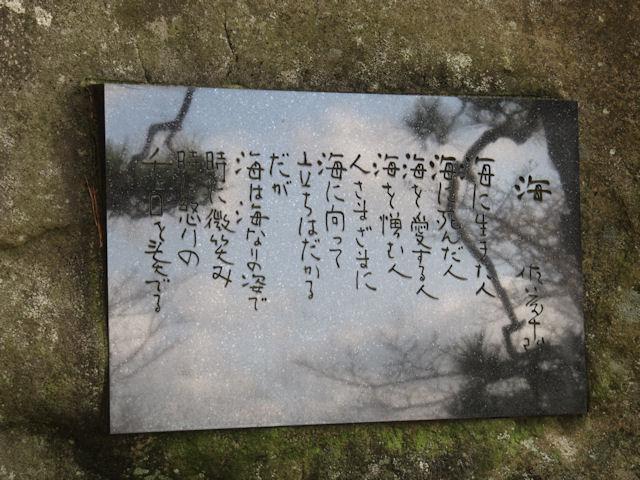 海
海に生きた人
海に死んだ人
海を愛する人
海を憎む人
人さまざまに
海に向って
立ちはだかる
だが
海は海なりの姿で
時に微笑み
時に怒りの
を奏でる